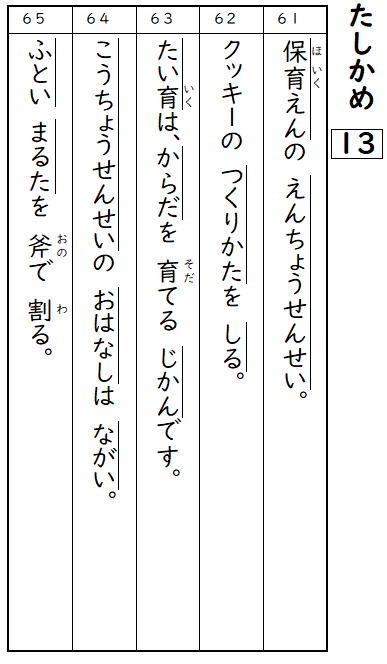 たしかめ 13
61
保育えんの えんちょうせんせい。
ほいく
62
クッキーの つくりかたを しる。
63
たい育は、からだを 育てる じかんです。
いく
そだ
64
こうちょうせんせいの おはなしは ながい。
65
ふとい まるたを 斧で 割る。
おの
わ